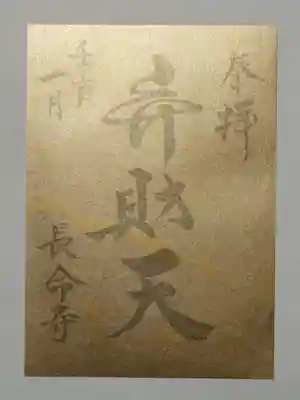 奉拝
弁財天
壬寅
一月
長命寺